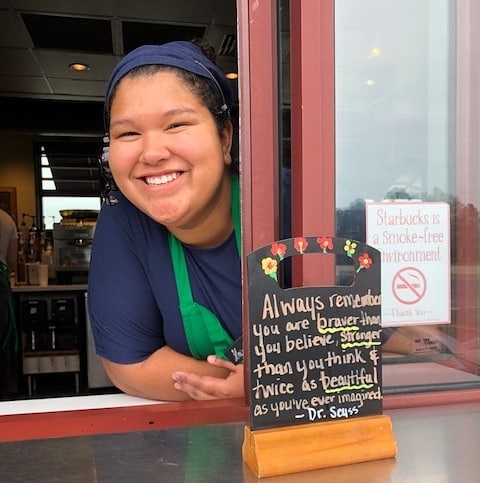 Starbucks is
a Smoke-free
Environment
- Thank you -
Always remember
you are braver than
you believe, stronger
than you think &
twice as beautiful
as you've ever imagined.
- Dr. Seuss